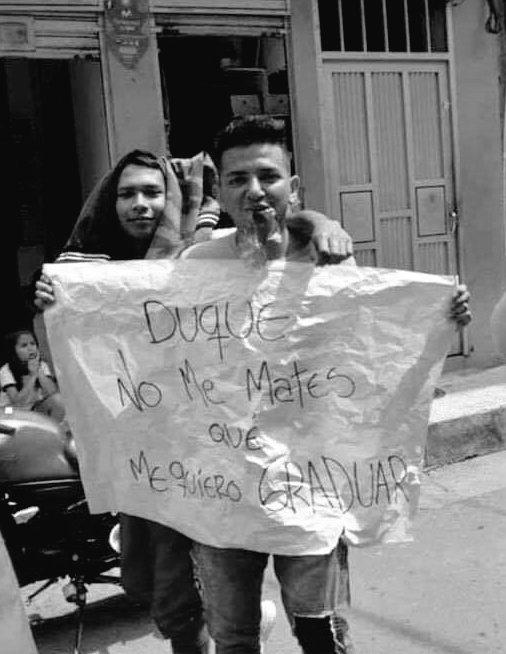 DUQUE
No Me Mates
QUE
ME QUIERO GRADUAR